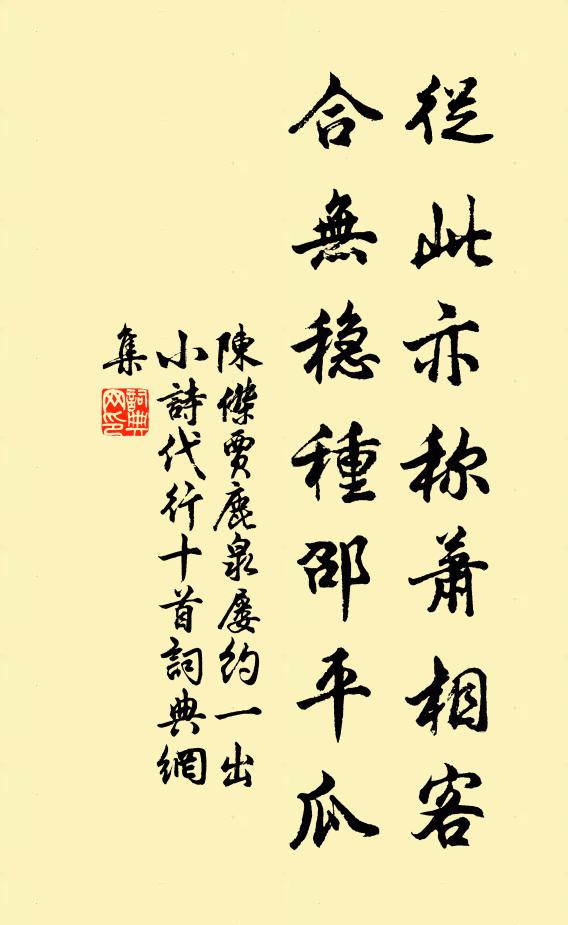 從此亦称蕭相客
合無穏種邵平瓜
陳傑賈鹿泉屡約一出
小詩代行十首詞典網
集
詞典
网印